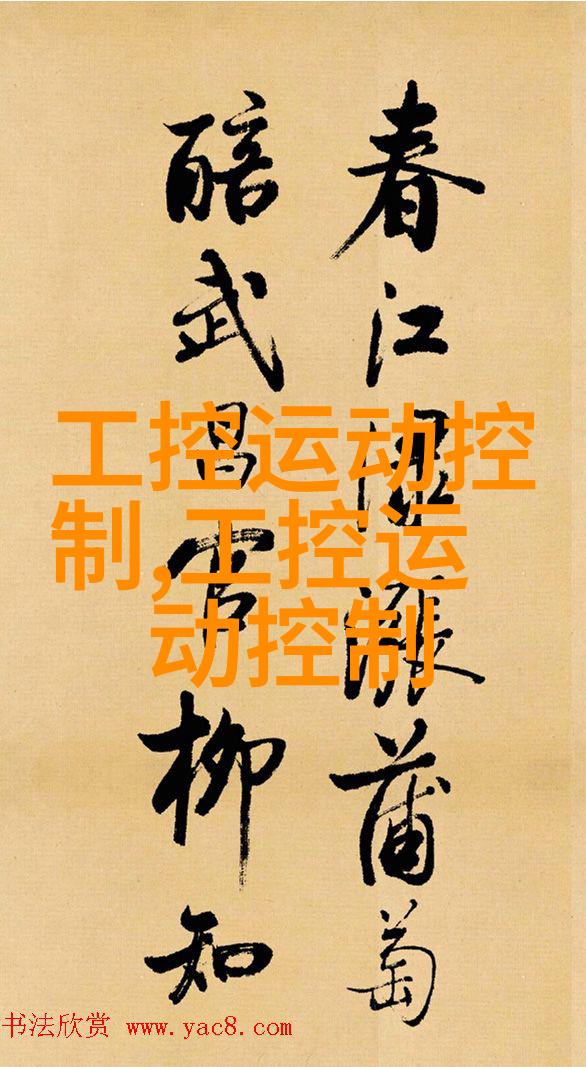 春江淥漲蒲萄
醅武昌官柳知
工控运动控
制,工控运
动控制
书法欣赏 www.yac8.com